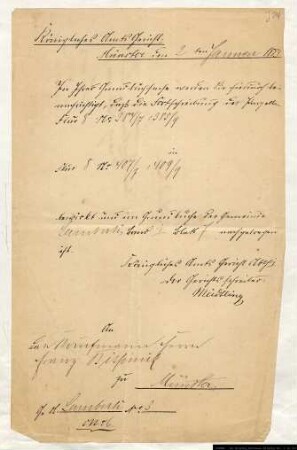 Königliches Amts Gericht.
Münster den 2 ten Januar
In Ihrer Grundbuchsache werden Sie hierdurch be-
nachrichtigt, daß die Fortschreibung der Parzelle
Flur 8 No 384/7 383/9
in
Flur 8 No 408/9 409/9
bewirkt und im Grundbuche der Gemeinde
Lamberti Band Blatt nachgetragen
ist.
Königliches Amts Gericht
Der Gerichtsschreiber
An
den Kaufmann Herrn
Franz
zu
Münster
Lamberti